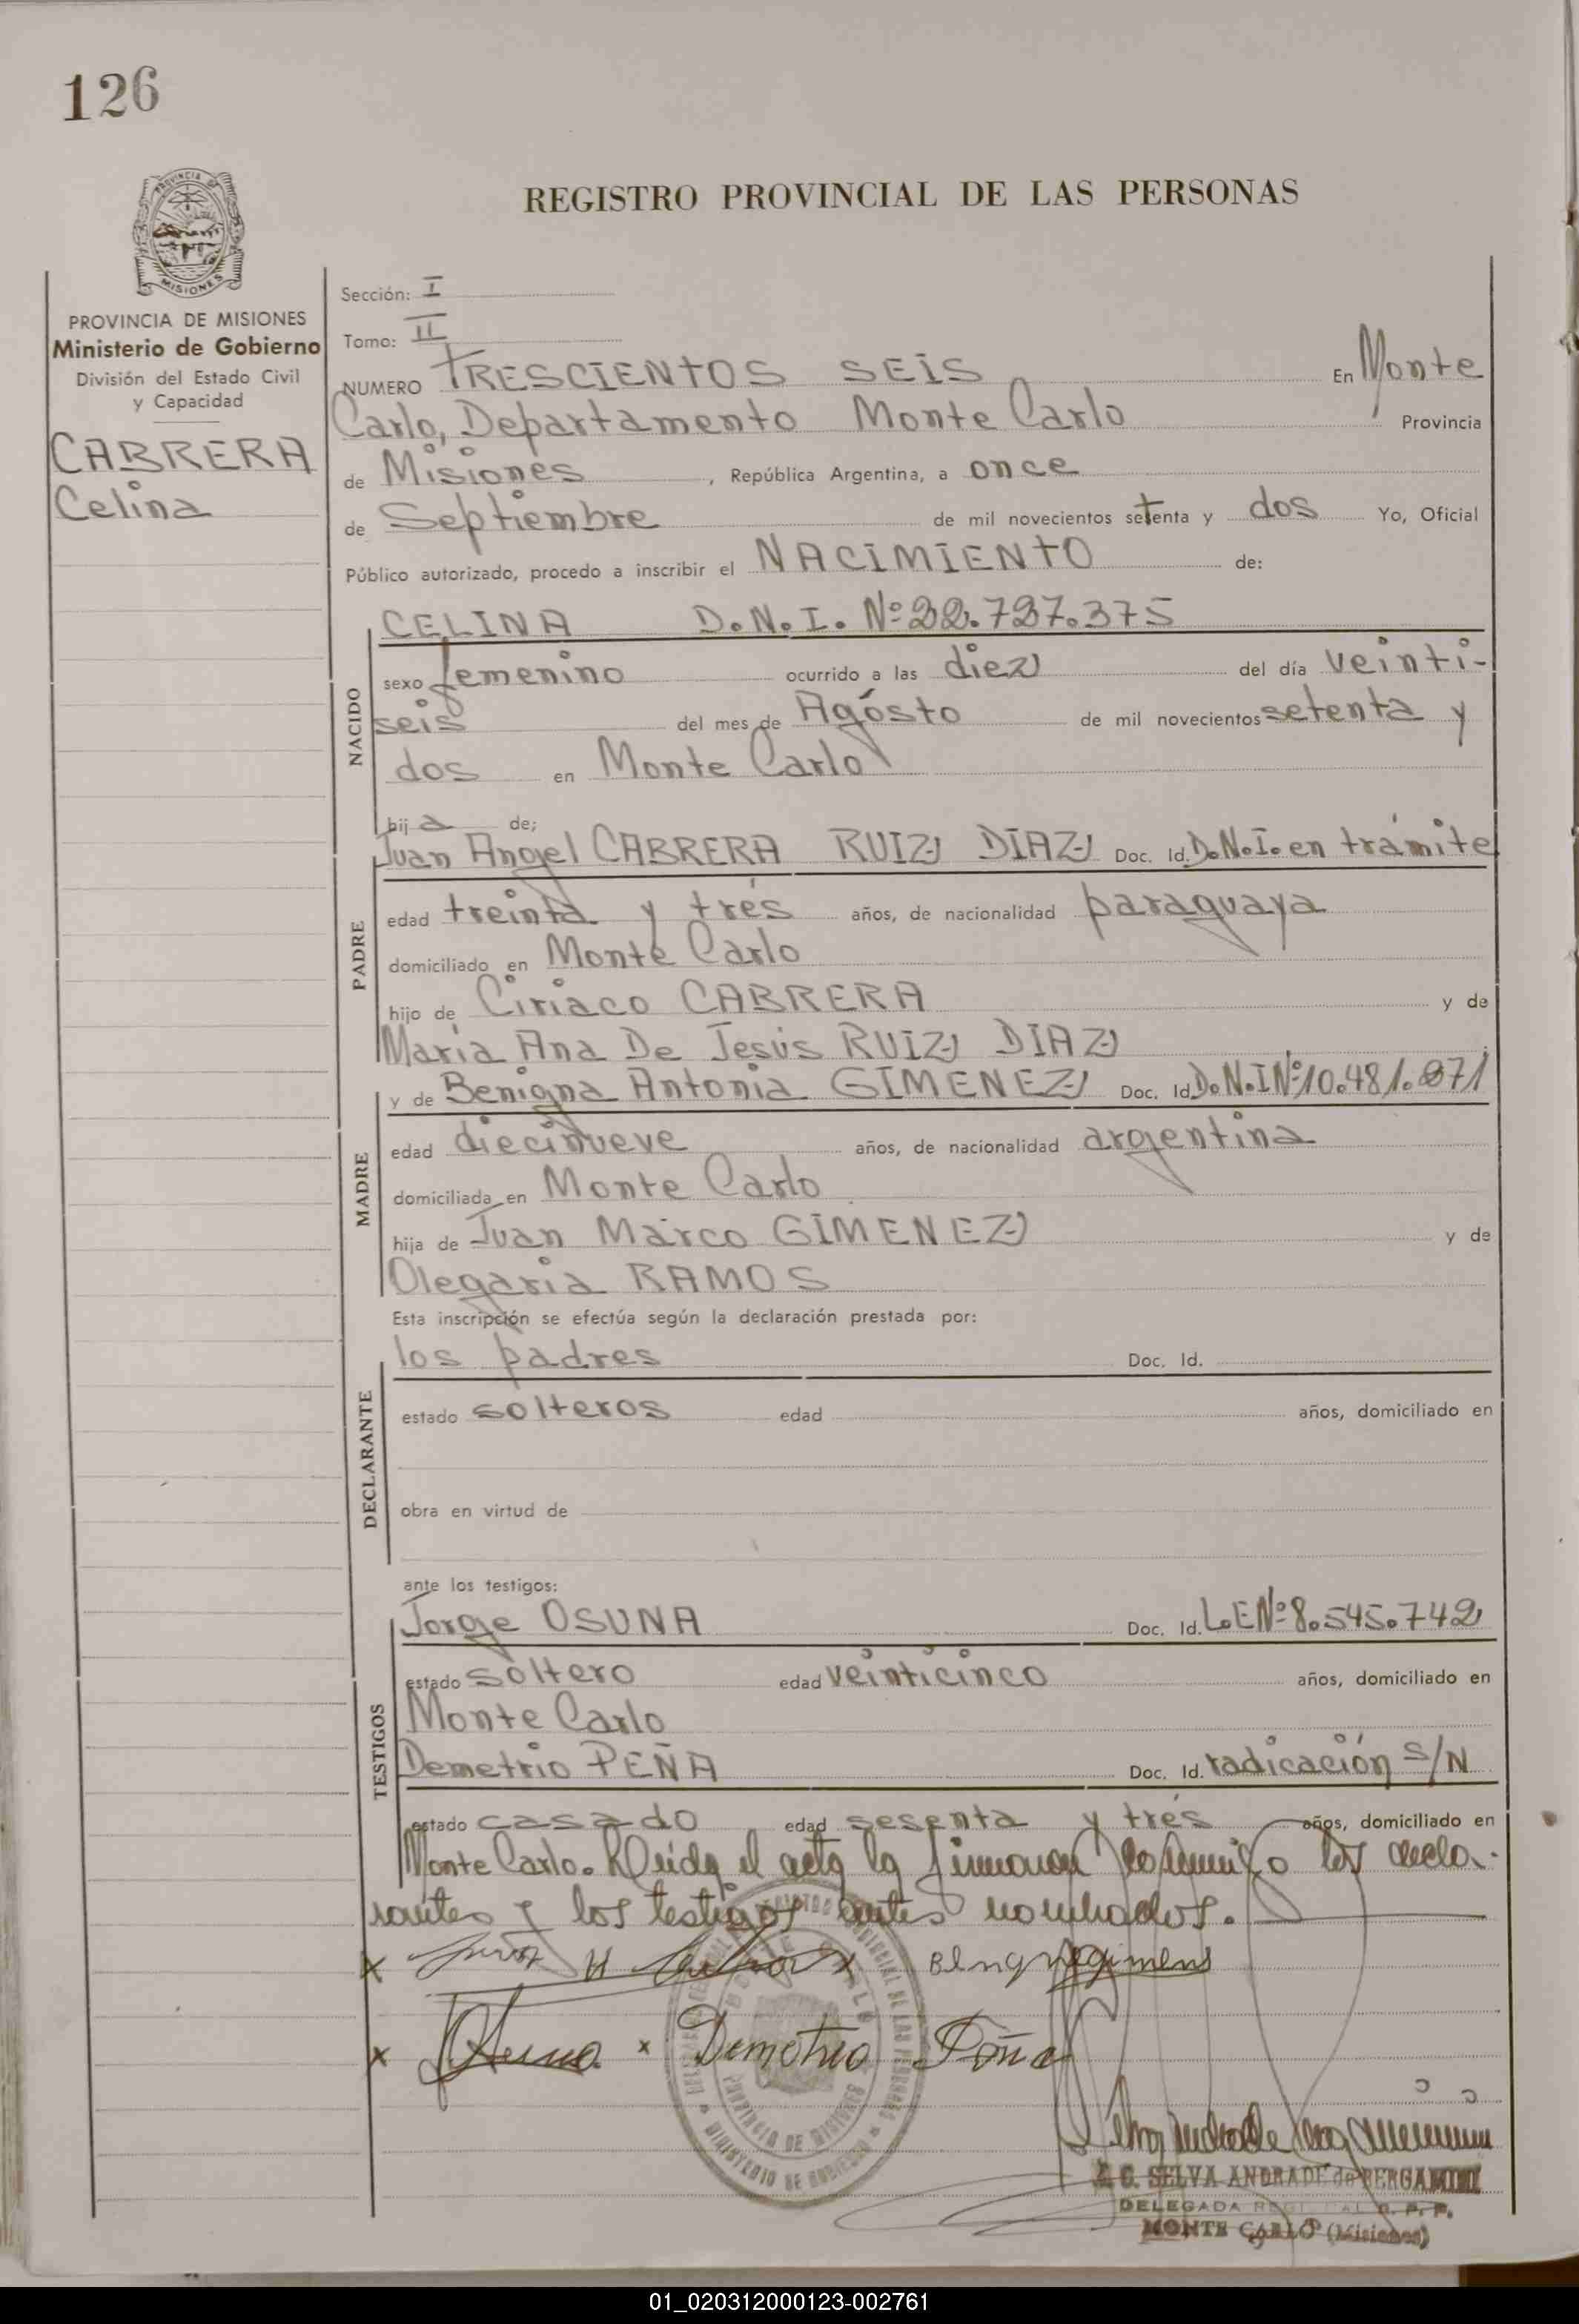 126
PROVINCIA DE MISIONES
REGISTRO PROVINCIAL DE LAS PERSONAS
PROVINCIA DE MISIONES
Ministerio de Gobierno
División del Estado Civil
y Capacidad
CABRERA
Celina
Sección: I
Tomo: II
NUMERO TRESCIENTOS SEIS En Monte
Carlo, Departamento Monte Carlo, Provincia
de Misiones, República Argentina, a once
de Septiembre de mil novecientos setenta y dos Yo, Oficial
Público autorizado, procedo a inscribir el NACIMIENTO de:
NACIDO
CELINA D.N.I. Nº 22.727.375
sexo femenino ocurrido a las diez del día veinti-
seis del mes de Agosto de mil novecientos setenta y
dos en Monte Carlo
hija de;
PADRE
Juan Angel CABRERA RUIZ DIAZ Doc. Id. D.N.I. en trámite
edad treinta y tres años, de nacionalidad paraguaya
domiciliado en Monte Carlo
hijo de Ciriaco CABRERA y de
María Ana De Jesús RUIZ DIAZ
MADRE
y de Benigna Antonia GIMENEZ Doc. Id. D.N.I Nº 10.481.871
edad diecinueve años, de nacionalidad argentina
domiciliada en Monte Carlo
hija de Juan Marco GIMENEZ y de
Olegaria RAMOS
Esta inscripción se efectúa según la declaración prestada por:
DECLARANTE
los padres Doc. Id.
estado solteros edad años, domiciliado en
obra en virtud de
ante los testigos:
TESTIGOS
Jorge OSUNA Doc. Id. L.E Nº 8.545.742
estado soltero edad veinticinco años, domiciliado en
Monte Carlo
Demetrio PEÑA Doc. Id. radicación S/N
estado casado edad sesenta y tres años, domiciliado en
Monte Carlo. Leída el acta la firmaron conmigo los decla-
rantes y los testigos antes nombrados.
Demetrio Peña
PROVINCIA DE MISIONES
MINISTERIO DE GOBIERNO
SELVA ANDRADE de BERGAMINI
DELEGADA
MONTE CARLO (Misiones)
01_020312000123-002761